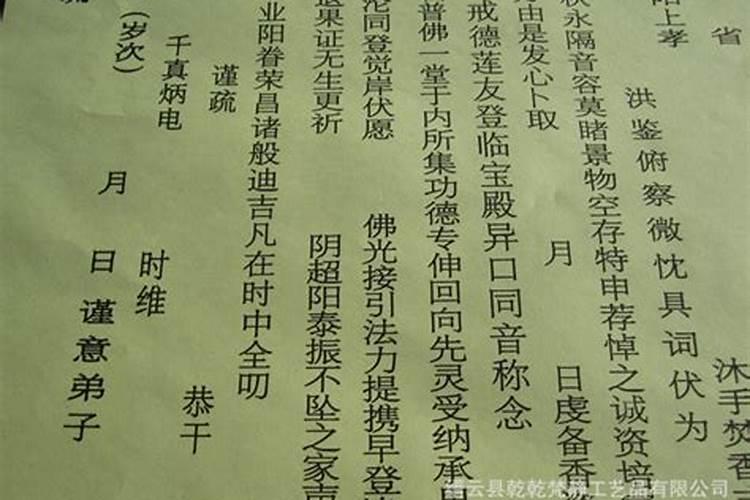 省
沐手焚香
陌上孝
洪鉴俯察微忱具词伏为
永隔音容莫睹景物空存特申荐悼之诚资培
由是发心卜取
月
日虔备香
戒德莲友登临宝殿异口同音称念
普佛一堂于内所集功德专伸回向先灵受纳承
沦同登觉岸伏愿
佛光接引法力提携早登
果证无生更祈
阴超阳泰振不坠之家声
业阳眷荣昌诸般迪吉凡在时中全叨
谨疏
恭干
千真炳电
时维
(岁次)
月
日谨意弟子
疏
缙云县乾乾梵静工艺品有限公司